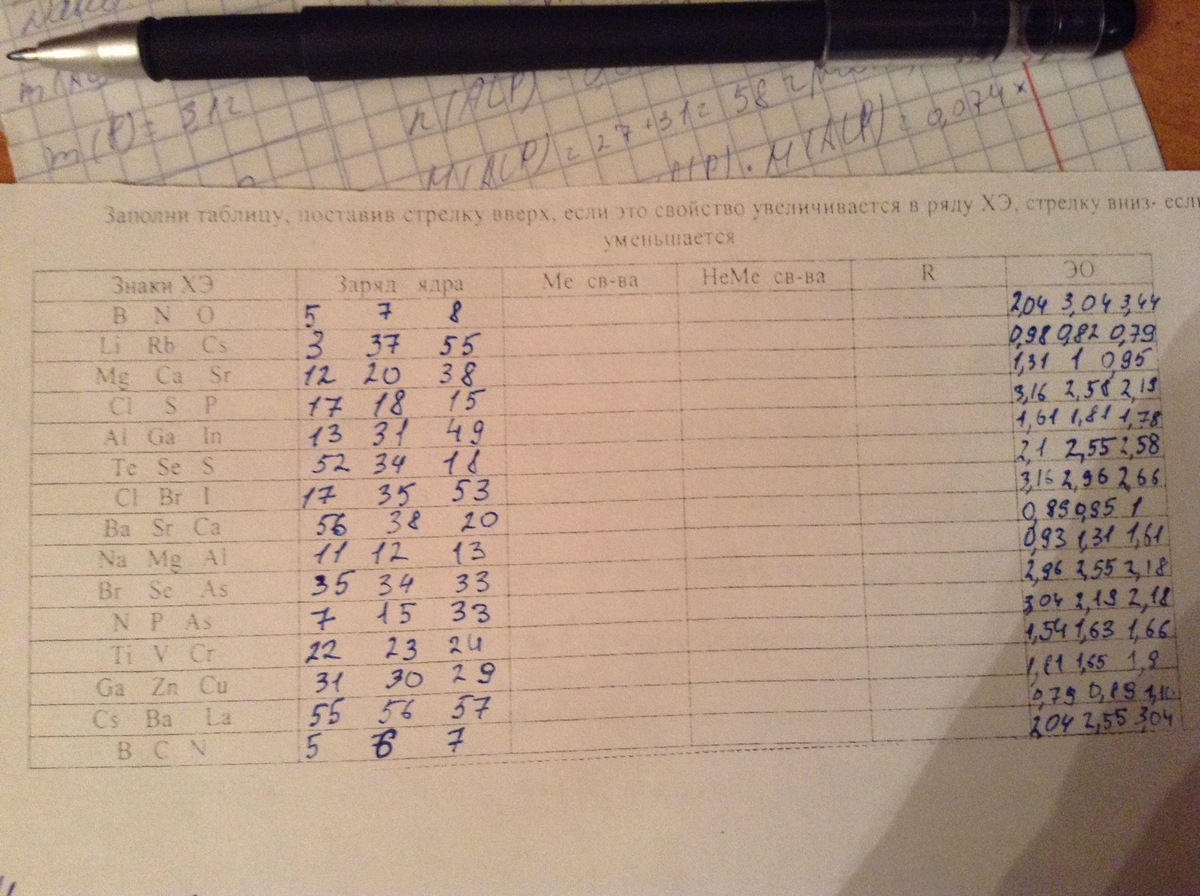 m(P)= 31г
M(AlP) = 27+31= 58 г/
M(AlP) = 0,074
Заполни таблицу, поставив стрелку вверх, если это свойство увеличивается в ряду ХЭ, стрелку вниз- если
уменьшается
Знаки ХЭ Заряд ядра Ме св-ва НеМе св-ва R ЭО
B N O 5 7 8 2,04 3,04 3,44
Li Rb Cs 3 37 55 0,98 0,82 0,79
Mg Ca Sr 12 20 38 1,31 1 0,95
Cl S P 17 18 15 3,16 2,58 2,19
Al Ga In 13 31 49 1,61 1,81 1,78
Te Se S 52 34 18 2,1 2,55 2,58
Cl Br I 17 35 53 3,16 2,96 2,66
Ba Sr Ca 56 38 20 0,89 0,95 1
Na Mg Al 11 12 13 0,93 1,31 1,61
Br Se As 35 34 33 2,96 2,55 2,18
N P As 7 15 33 3,04 2,19 2,18
Ti V Cr 22 23 24 1,54 1,63 1,66
Ga Zn Cu 31 30 29 1,81 1,65 1,9
Cs Ba La 55 56 57 0,79 0,89 1,10
B C N 5 6 7 2,04 2,55 3,04